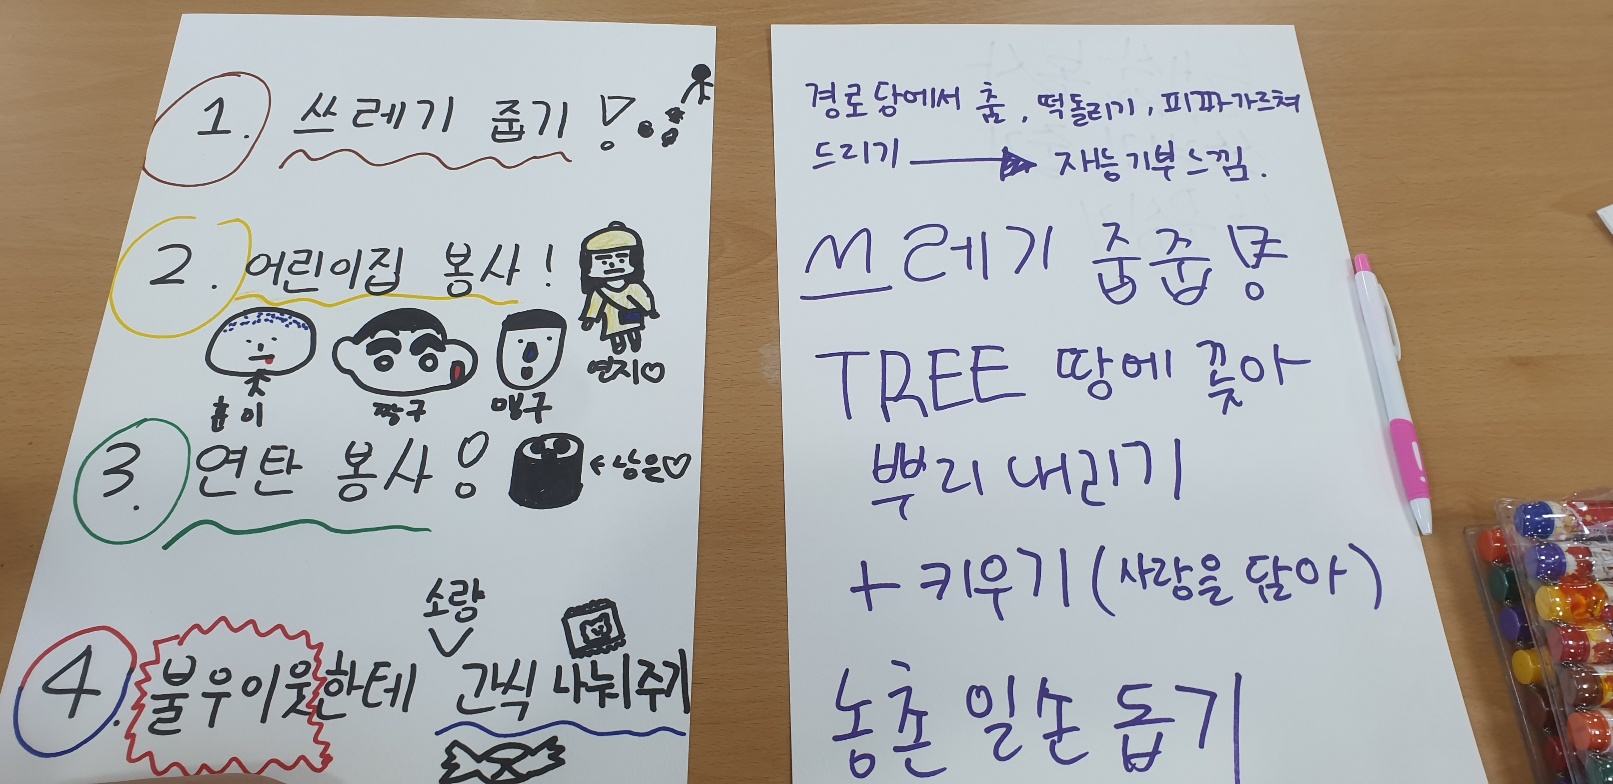 1. 쓰레기 줍기!
2. 어린이집 봉사!
훈이
짱구
맹구
연지♡
3. 연탄 봉사!
낭은♡
소량
4. 불우이웃한테 간식 나눠주기
경로당에서 춤, 떡돌리기, 피파가르쳐
드리기 → 재능기부느낌.
쓰레기 줍줍
TREE 땅에 꽂아
뿌리 내리기
+ 키우기 (사랑을 담아)
농촌 일손 돕기